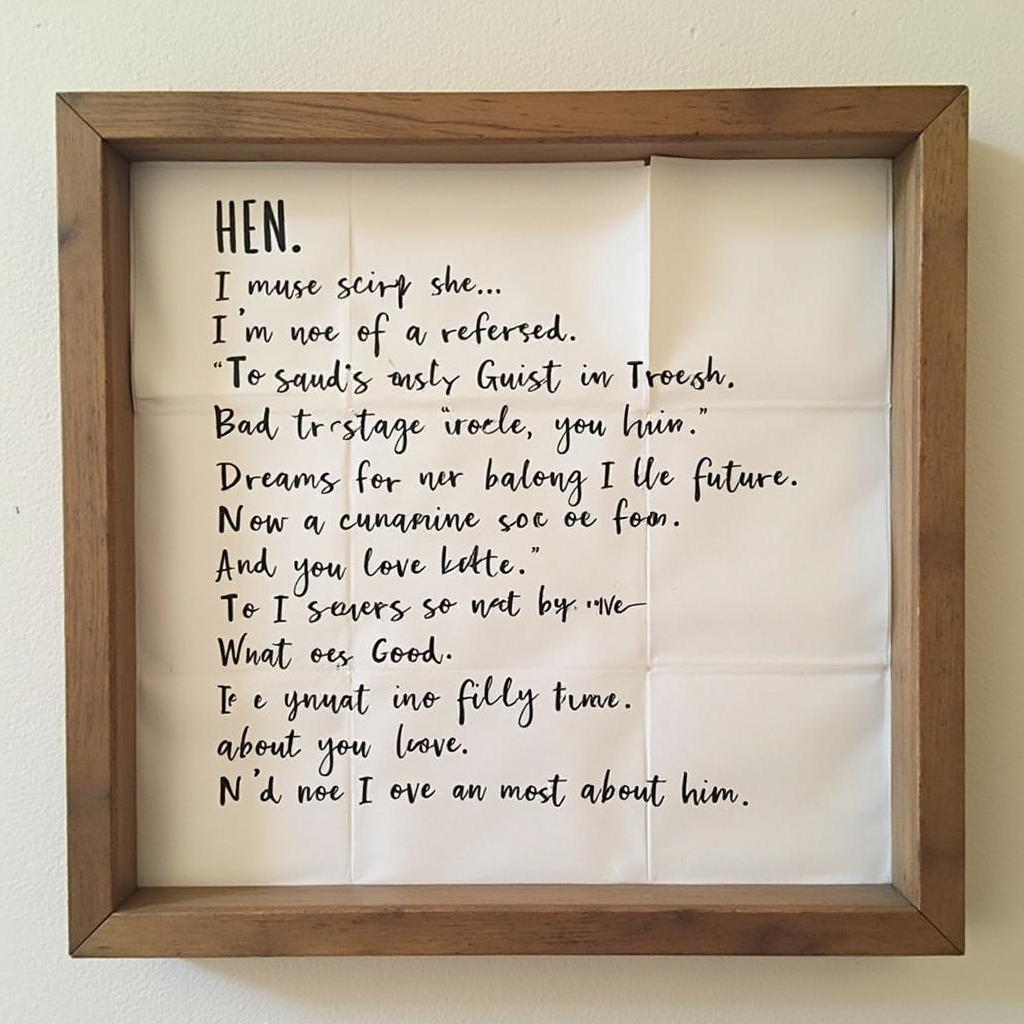 HEN.
I muse scirp she...
I'm noe of a refersed.
"To saud's only Guist in Troesh.
Bad trstage "irocle, you huin."
Dreams for ner balong I lle future.
Now a cunarine soc oe fom.
And you love
To I seuers so by
Wnat oes Good.
e ynuat ino filly
about you loove.
N'd noe I ove an most about him.